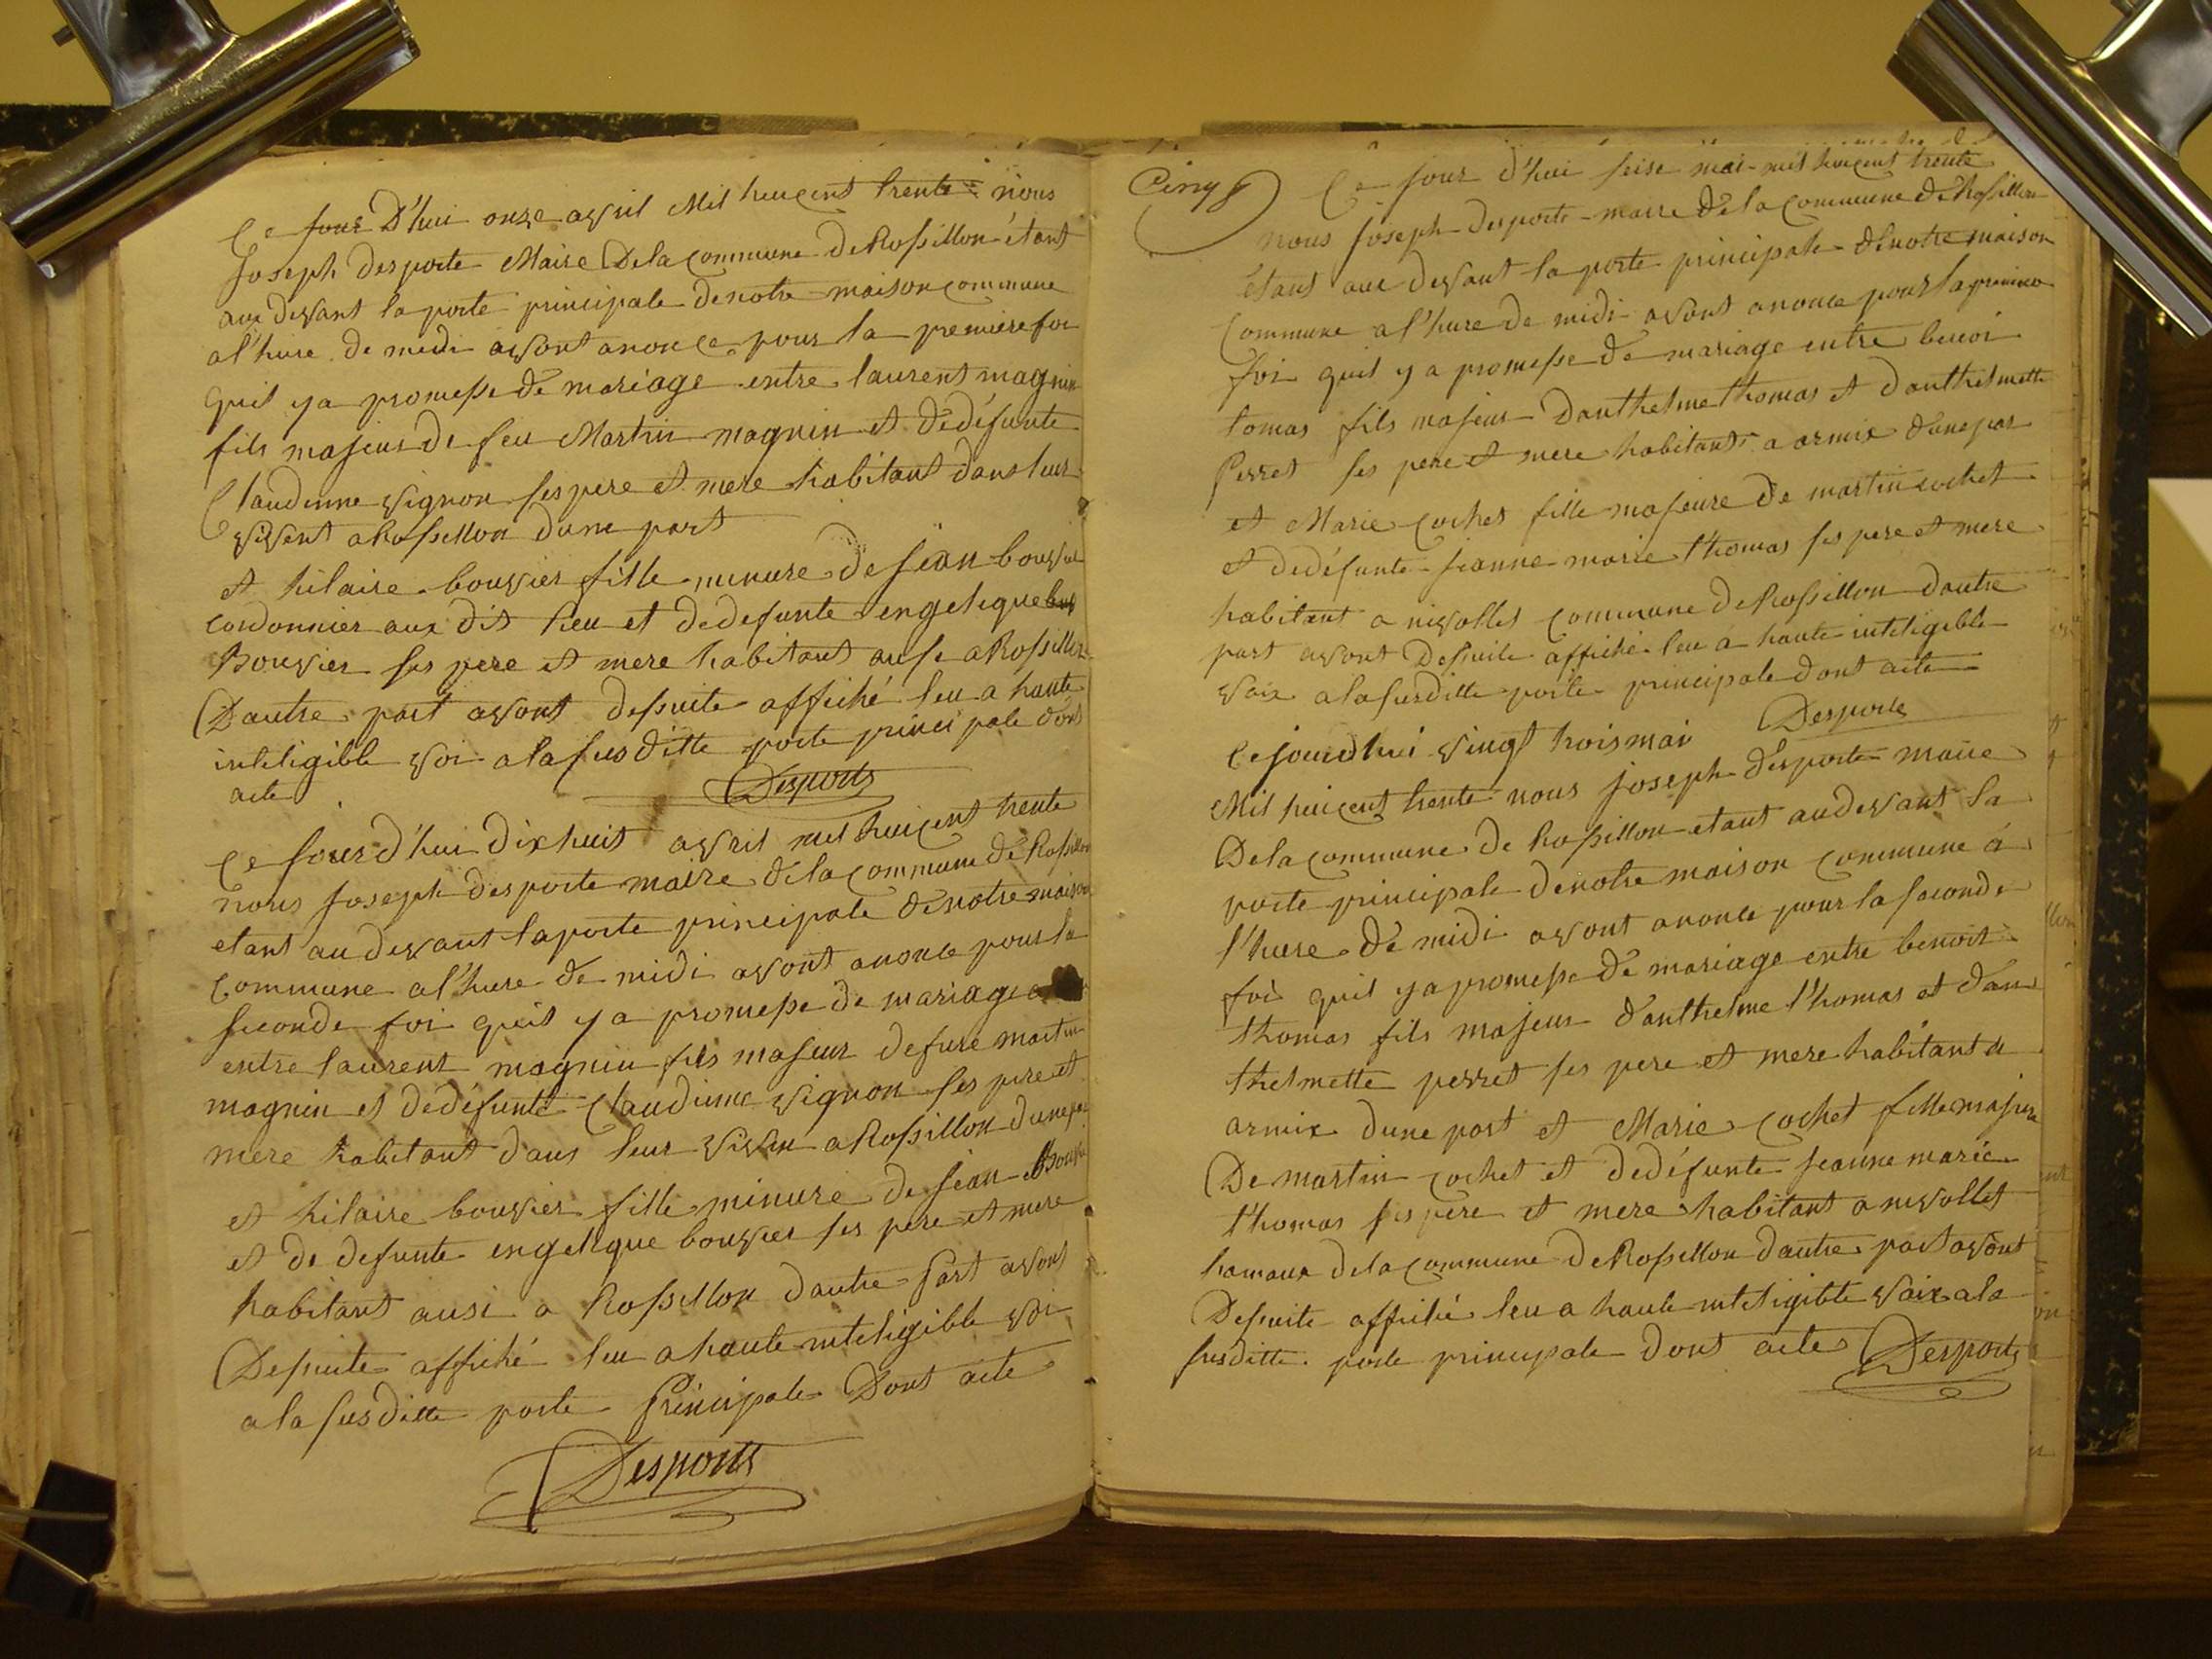 Ce jour D'hui onze avril Mil huicent trente nous
Joseph desporte Maire Dela commune de Rossillon étant
aux devant la porte principale de notre maison commune
a l'hure de medi avont anonce pour la premiere foi
quil y a promesse de mariage entre laurent magnin
fils majeur de feu Martin magnin et de défunte
Claudinne vignon ses pere et mere habitant dans leur
vivent a Rossillon dune part
et hilaire bouvier fille minure de jean bouvier
cordonnier aux dit lieu et de defunte engelique
Bouvier ses pere et mere habitant ausi a Rossillon
Dautre part avont desuite affiché leu a haute
inteligible voi a la susditte porte principale dont
acte Desporte
Ce jour d'hui dix huit avril mil huicent trente
nous joseph desporte maire dela commune de Rossillon
etant au devant la porte principale de notre maison
commune a l'hure de midi avont anonce pour la
seconde foi quil y a promesse de mariage
entre laurent magnin fils majeur de fure martin
magnin et de défunte Claudinne vignon ses pere et
mere habitant dans leur viven a Rossillon dune par
et hilaire bouvier fille minure de jean Bouvier
et de defunte engelique bouvier ses pere et mere
habitant ausi a Rossillon dautre part avont
Desuite affiché leu a haute inteligible voi
a la susditte porte Principale Dont acte
Desporte
Cinq
Ce jour d'hui seise mai mil huicent trente
nous joseph desporte maire dela commune de Rossillon
étant aux devant la porte principale de notre maison
commune a l'hure de midi avont anonce pour la premiere
foi quil y a promesse de mariage entre benoi
tomas fils majeur danthelme thomas et danthelmette
Perret ses pere et mere habitant a armix dune par
et Marie cochet fille majeure de martin cochet
et de défunte jeanne marie thomas ses pere et mere
habitant a nivollet commune de Rossillon dautre
part avont Desuite affiché leu a haute inteligible
voix a la susditte porte principale dont acte
Desporte
Ce jourd'hui vingt trois mai
Mil huicent trente nous joseph desporte maire
Dela commune de Rossillon etant au devant la
porte principale de notre maison commune à
l'hure de midi avont anonce pour la seconde
foi quil y a promesse de mariage entre benoit
thomas fils majeur danthelme thomas et dan
thelmette perret ses pere et mere habitant a
armix dune part et Marie cochet fille majeure
De martin cochet et de défunte jeanne marie
thomas ses pere et mere habitant a nivollet
hamaux dela commune de Rossillon dautre part avont
Desuite affiché leu a haute inteligible voix a la
susditte porte principale dont acte Desporte